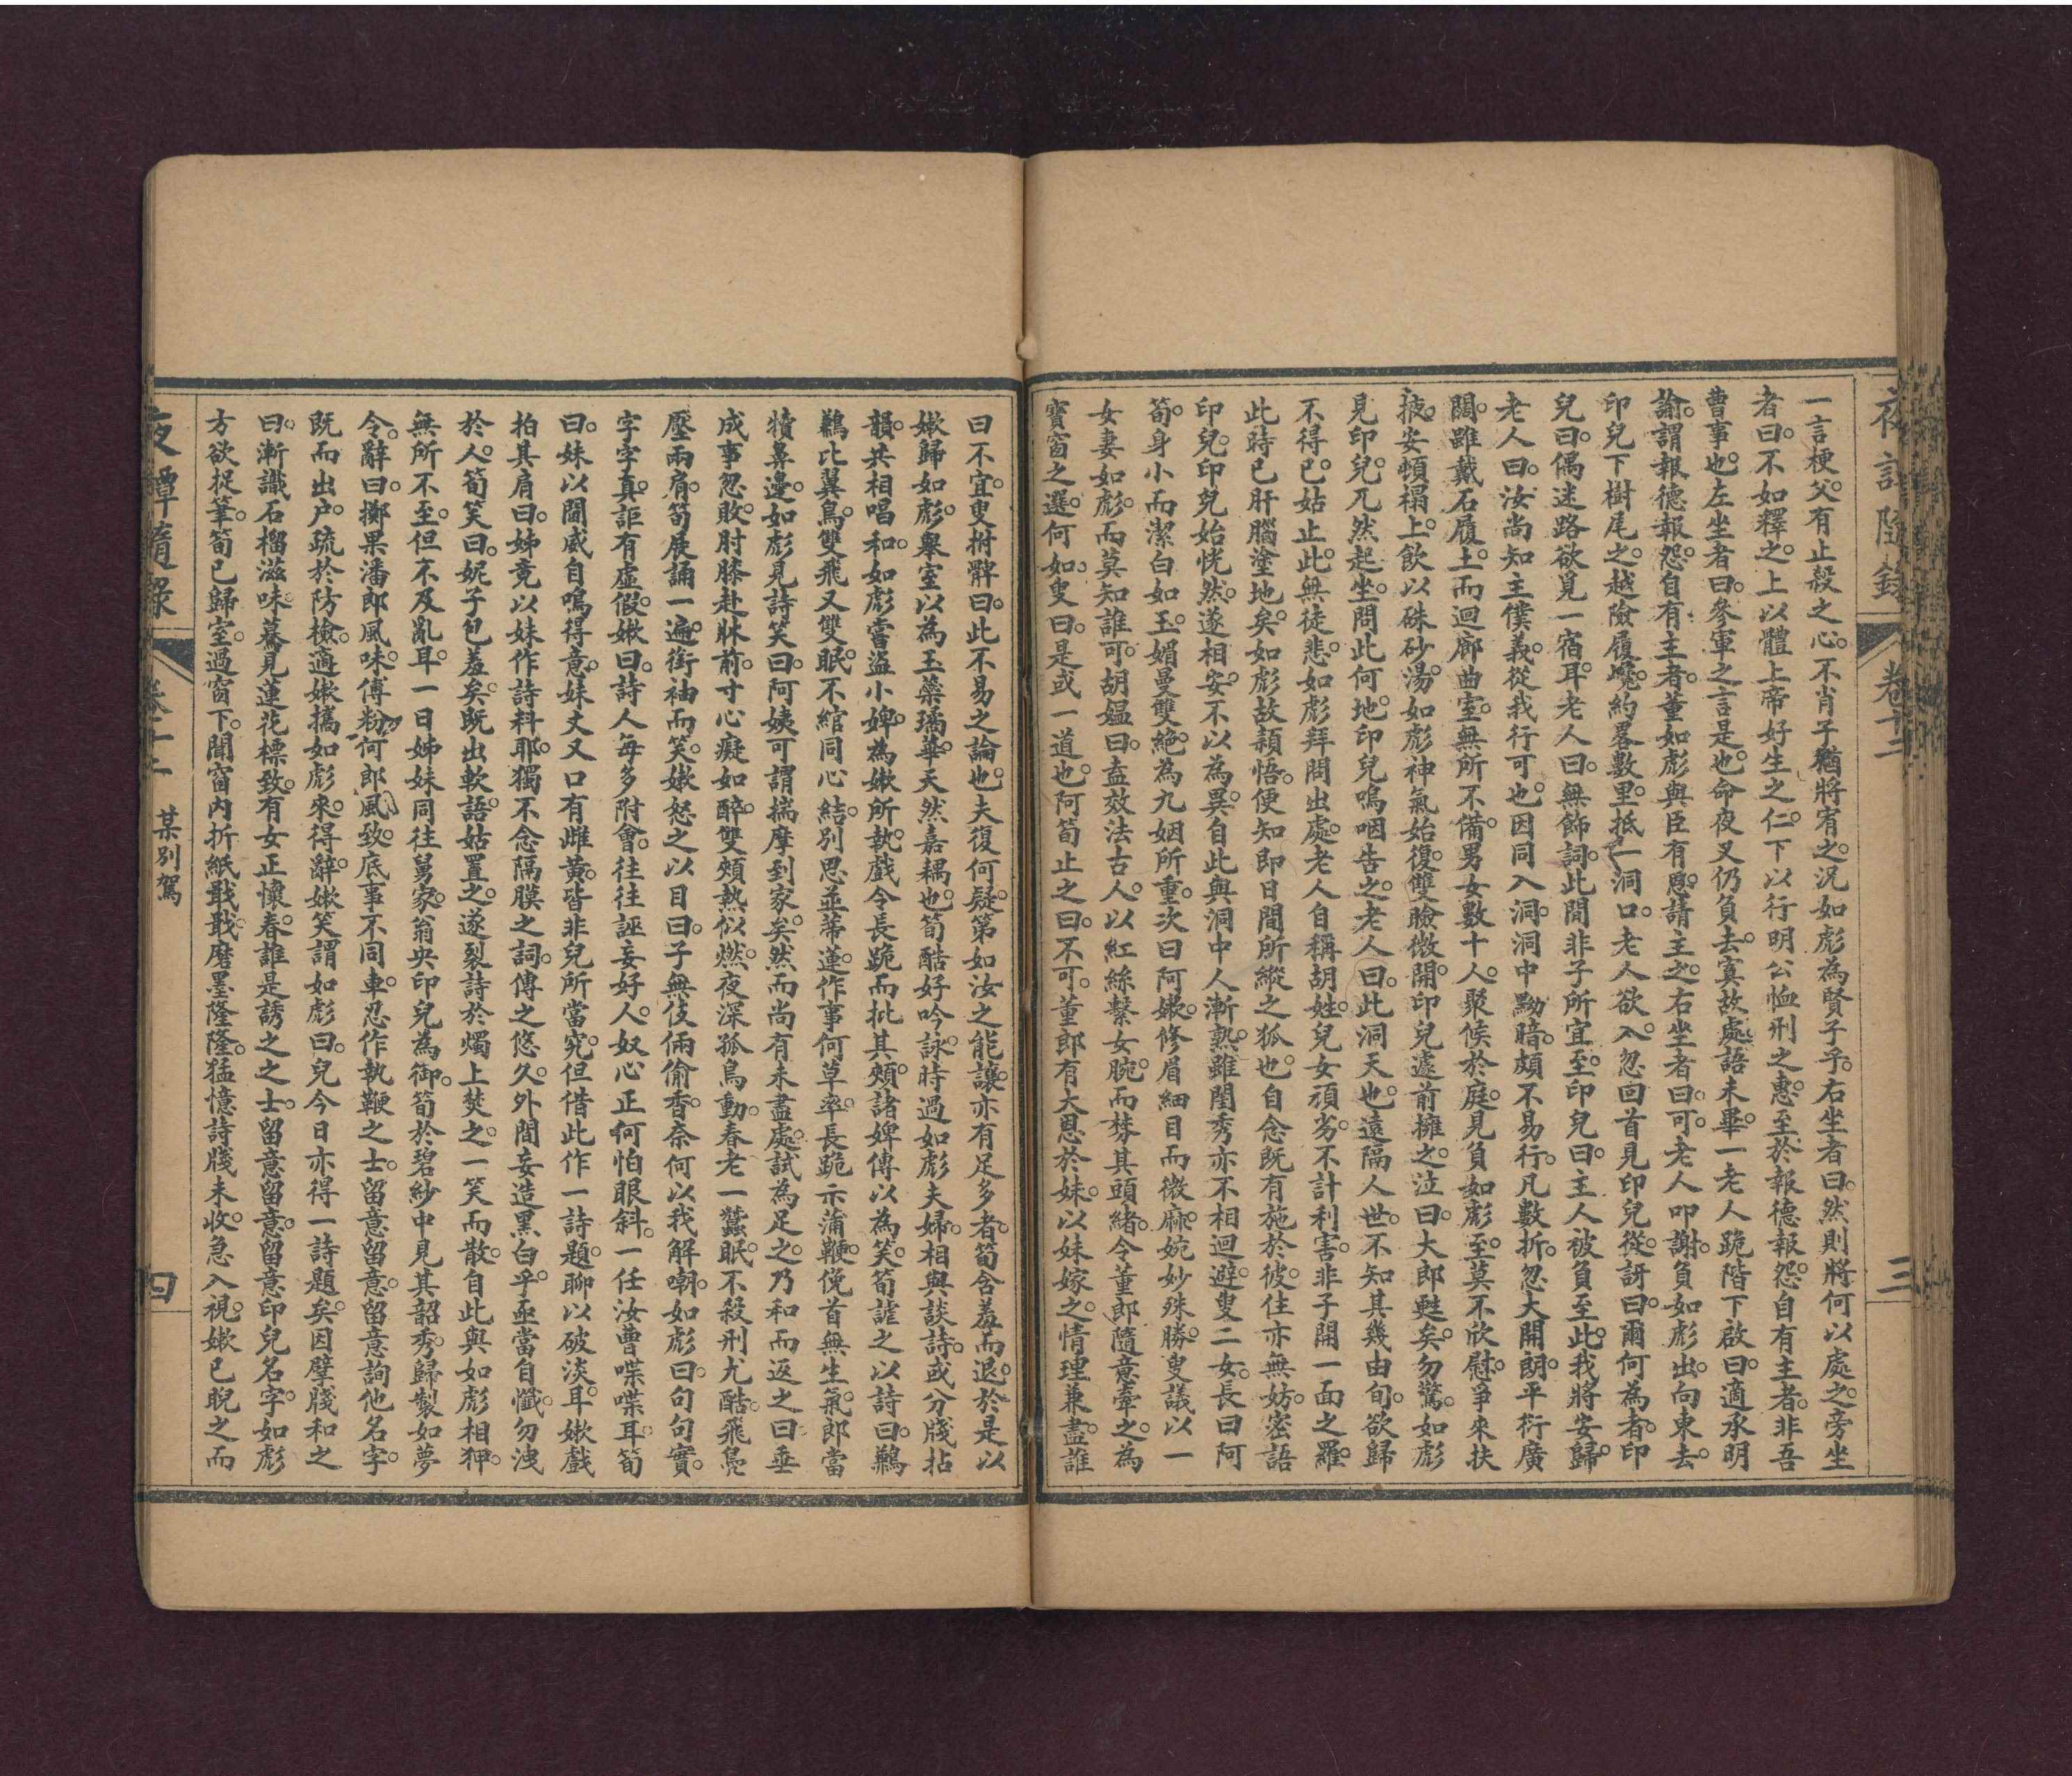 夜譚隨錄
卷十二
三
一言梗父有止殺之心不肖子猶將宥之況如彪為賢子乎右坐者曰然則將何以處之旁坐
者曰不如釋之上以體上帝好生之仁下以行明公恤刑之惠至於報德報怨自有主者非吾
曹事也左坐者曰參軍之言是也命夜叉仍負去寘故處語未畢一老人跪階下啟曰適承明
諭謂報德報怨自有主者董如彪與臣有恩請主之右坐者曰可老人叩謝負如彪出向東去
印兒下樹尾之越險履巉約畧數里抵一洞口老人欲入忽回首見印兒從訝曰爾何為者印
兒曰偶迷路欲覓一宿耳老人曰無飾詞此間非子所宜至印兒曰主人被負至此我將安歸
老人曰汝尚知主僕義從我行可也因同入洞洞中黝暗頗不易行凡數折忽大開朗平衍廣
闊雖戴石履土而迴廊曲室無所不備男女數十人聚候於庭見負如彪至莫不欣慰爭來扶
掖安頓榻上飲以硃砂湯如彪神氣始復雙瞼微開印兒遽前擁之泣曰大郎甦矣勿驚如彪
見印兒兀然起坐問此何地印兒嗚咽告之老人曰此洞天也遠隔人世不知其幾由旬欲歸
不得已姑止此無徒悲如彪拜問出處老人自稱胡姓兒女頑劣不計利害非子開一面之羅
此時已肝腦塗地矣如彪故穎悟便知即日間所縱之狐也自念既有施於彼住亦無妨密語
印兒印兒始恍然遂相安不以為異自此與洞中人漸熟雖閨秀亦不相迴避叟二女長曰阿
筍身小而潔白如玉媚曼雙絕為九姻所重次曰阿嫩修眉細目而微麻婉妙殊勝叟議以一
女妻如彪而莫知誰可胡媼曰盍效法古人以紅絲繫女腕而棼其頭緒令董郎隨意牽之為
寶窗之選何如叟曰是或一道也阿筍止之曰不可董郎有大恩於妹以妹嫁之情理兼盡誰
曰不宜叟拊髀曰此不易之論也夫復何疑第如汝之能讓亦有足多者筍含羞而退於是以
嫩歸如彪舉室以為玉藥璚華天然嘉耦也筍酷好吟詠時過如彪夫婦相與談詩或分牋拈
韻共相唱和如彪嘗盜小婢為嫩所執戲令長跪而批其頰諸婢傳以為笑筍謔之以詩曰鶼
鶼比翼鳥雙飛又雙眠不綰同心結別思並蒂蓮作事何草率長跪示蒲鞭俛首無生氣郎當
犢鼻邊如彪見詩笑曰阿姨可謂揣摩到家矣然而尚有未盡處試為足之乃和而返之曰垂
成事忽敗肘膝赴牀前寸心癡如醉雙頰熱似燃夜深孤鳥動春老一蠶眠不殺刑尤酷飛鳧
壓兩肩筍展誦一遍銜袖而笑嫩怒之以目曰子無伎倆偷香奈何以我解嘲如彪曰句句實
字字真詎有虛假嫩曰詩人每多附會往往誣妄好人奴心正何怕眼斜一任汝曹喋喋耳筍
曰妹以閫威自鳴得意妹丈又口有雌黃皆非兒所當究但借此作一詩題聊以破淡耳嫩戲
拍其肩曰姊竟以妹作詩料耶獨不念隔膜之詞傳之悠久外間妄造黑白乎亟當自懺勿洩
於人筍笑曰妮子包羞矣既出軟語姑置之遂裂詩於燭上焚之一笑而散自此與如彪相狎
無所不至但不及亂耳一日姊妹同往舅家翁央印兒為御筍於碧紗中見其韶秀歸製如夢
令辭曰擲果潘郎風味傅粉何郎風致底事不同車忍作執鞭之士留意留意留意詢他名字
既而出户疏於防檢適嫩攜如彪來得辭嫩笑謂如彪曰兒今日亦得一詩題矣因擘牋和之
曰漸識石榴滋味驀見蓮花標致有女正懷春誰是誘之之士留意留意留意印兒名字如彪
方欲捉筆筍已歸室過窗下聞窗內折紙戢戢磨墨隆隆猛憶詩牋未收急入視嫩已睨之而
夜譚隨錄
卷十二
某別駕
四